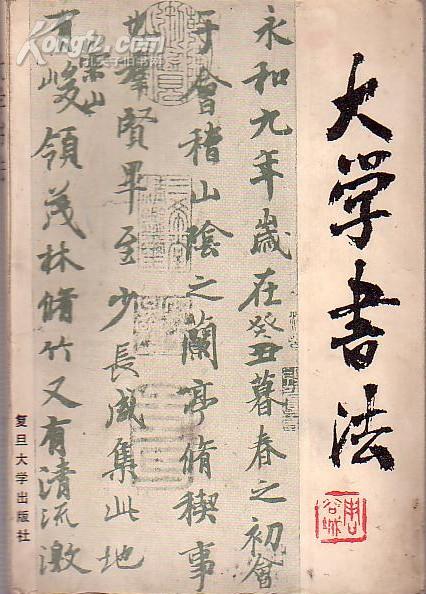 大学書法
周谷城
永和九年歲在癸丑暮春之初會
于會稽山陰之蘭亭脩稧事
也羣賢畢至少長咸集此地
有崇山峻領茂林脩竹又有清流激
复旦大学出版社
Kongfz.com
孔夫子旧书网